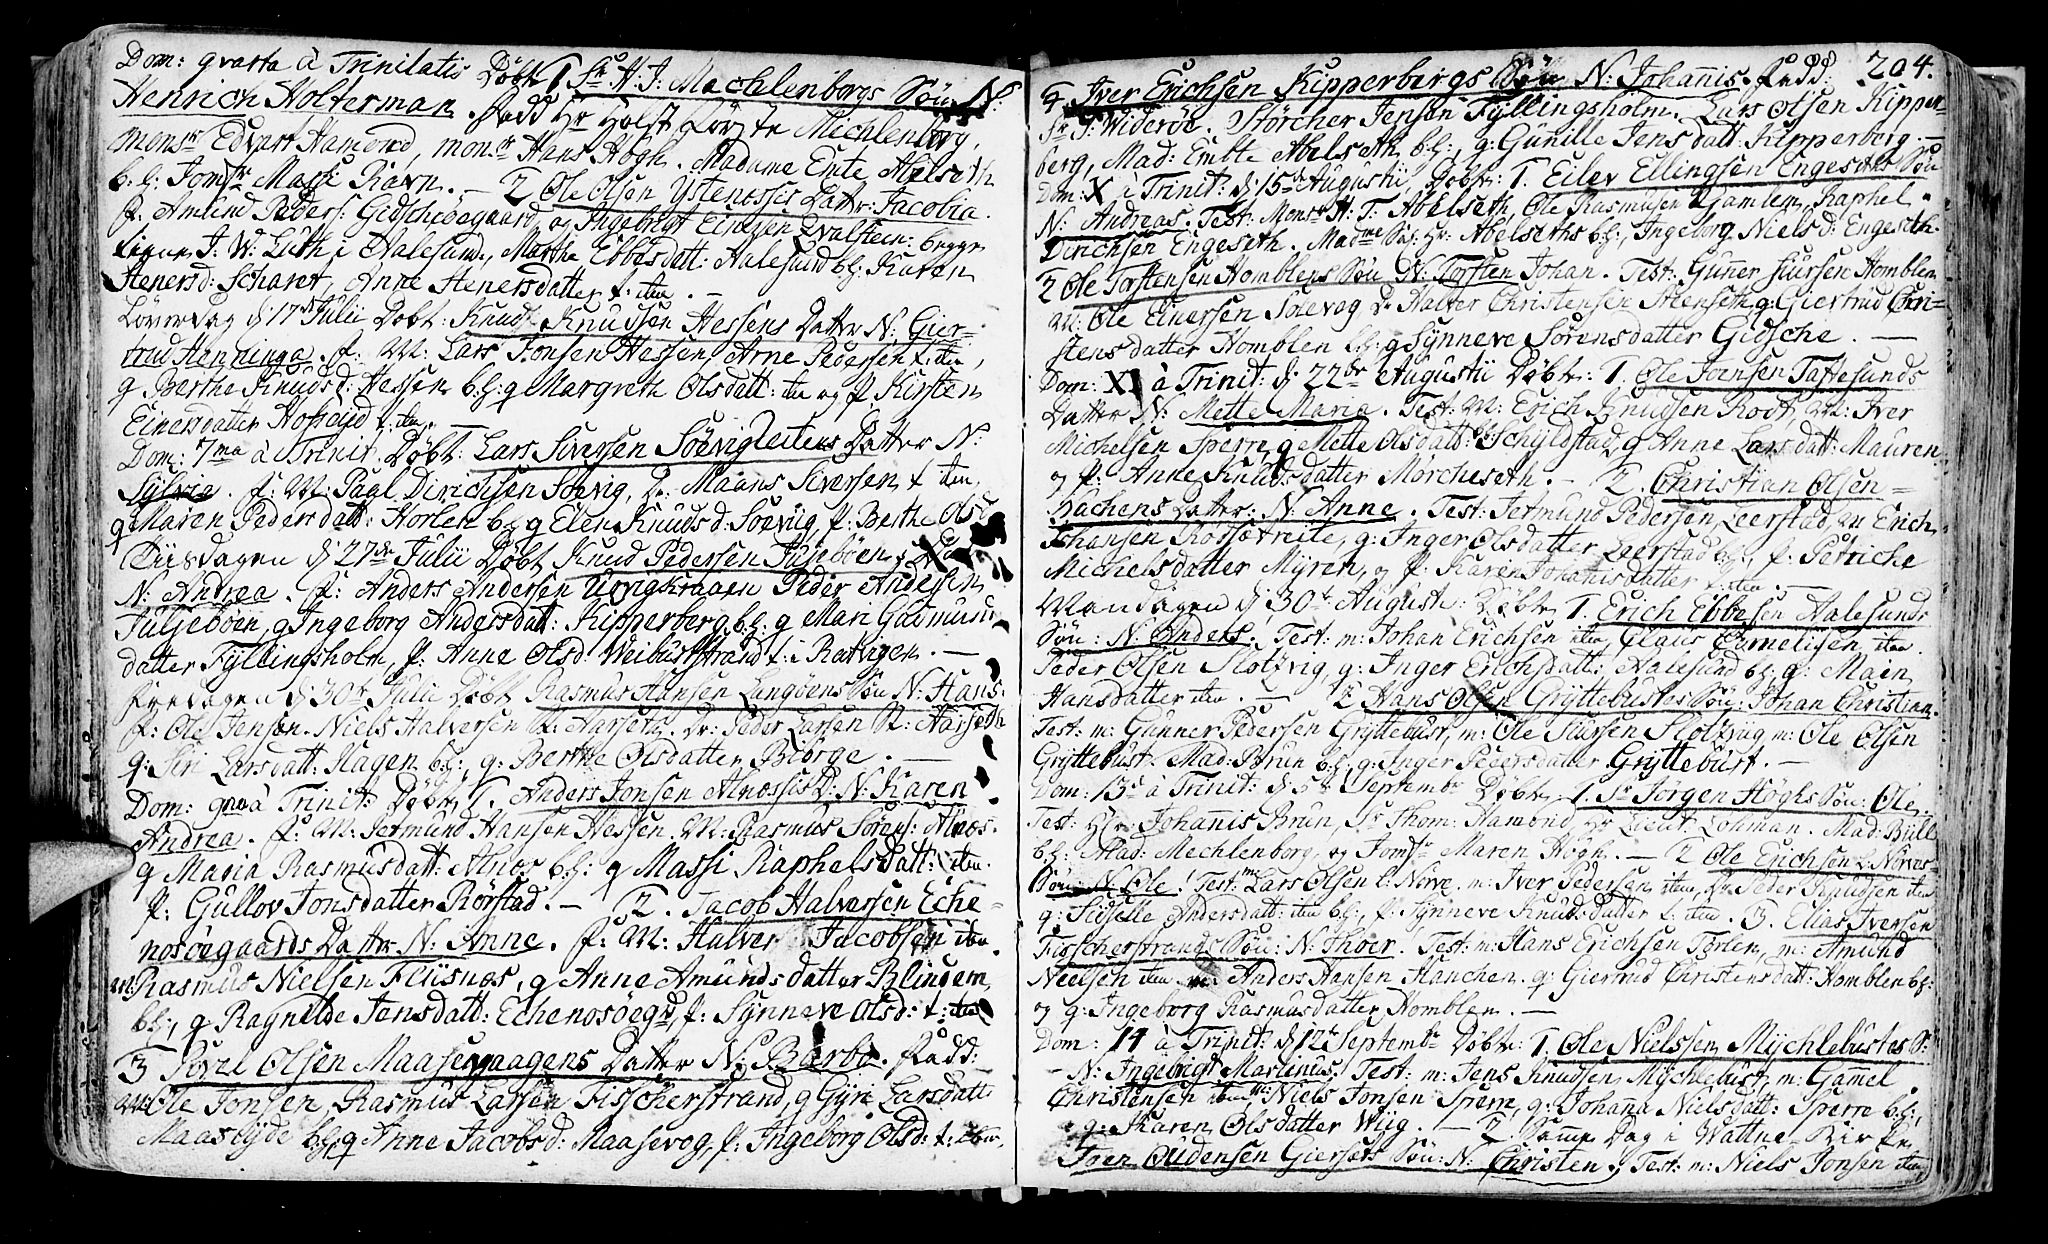 Dom: qvarta à Trinitatis Döbt 1 Sr H. J: Mechlenborgs Sön N:
Henrich Holterman. Fadd Hr Holst Mechlenborg,
monsr Edvart Hamond, monsr Hans Högh. Madame Emte Abelseth
b.b: Jomfr Massi Ravn. — 2 Ole Olsen Ystenesses Datter: Jacobia.
f: Amund Peders: Gidschöegaard og Ingebrigt Einesen Qvalsteen: begge
J. W: Luth i Aalesund, Marthe Ebbesdatt: Aalesund b.b: Karen
Stenersd: Scharet, Anne Stenersdatter t: iten. —
Löverdag d 17de Julii Döbt: Knud Knudsen Hessens Datter N: Gier-
trud Henninga. f: M: Lars Jonsen Hessen, Arne Pedersen t: iten,
q Berthe Knudsd: Hessen b.b: q Margreth Olsdatt: iten og p Kirsten
Einersdatter Hopeijd t: iten. —
Dom: 7ma à Trinit. Döbt: Lars Siversen Söevigleitens Datter N:
Sylvea. f: M: Paal Dirichsen Söevig, Dr: Maans Siversen t iten,
q Maren Pedersdatt: Horlen b.b q Elen Knudsd: Söeviig, p: Berthe Olsd
Tiisdagen d 27de Julii Döbt Knud Pedersen Juljeböen
N: Andrea. f: Anders Andersen Peder Andersen
Juljeböen, q Ingeborg Andersdatt: Kipperberg b.b. q Mari Gudmunds
datter Fyllingsholm, p: Anne Olsd: Weibuststrand t: i Ratvigen. —
Fredagen d 30te Julii Döbt Rasmus Hansen Langöens Sön N: Hans.
f: Ole Jensen. Niels Halversen St: Aarseth, Dr: Peder Larsen St: Aarseth
q: Siri Larsdatt: Hagen b.b:, q: Berthe Olsdatter Björge. —
Dom: 9na à Trinit: Döbt 1. Anders Jonsen Alnessis D: N: Karen
Andrea. f: M: Jetmund Hansen Hessen. M: Rasmus Sörens: Alnæs.
q Maria Rasmusdatt: Alnæs b.b: q Massi Raphelsdatt: iten.
p: Gullov Jonsdatter Rörstad. — 2. Jacob Halversen Eche-
nosöegaards Datter N: Anne. f: M: Halver Jacobsen iten.
m: Rasmus Nielsen Fliisnæs, q Anne Amundsdatter Blindem
b.b:, q Ragnilde Jensdatt: Echenosöegd p: Synneve Olsd: t: iten
3 Povel Olsen Maasevaagens Datter N: Barbo. Fadd:
m: Ole Jonsen, Rasmus Larsen Fisscherstrand, q Gyri Larsdatt:
Maaseijde b.b: q Anne Jacobsd: Maasevog, p: Ingeborg Olsd: t: iten.
204.
4 Iver Erichsen Kipperbergs Sön N: Johanis. Fadd:
Sr J: Wideröe. Störcher Jensen Fyllingsholm. Lars Olsen Kipper-
berg, Mad: Embte Abelseth b.b:, q: Gunille Jensdatt: Kipperberg. —
Dom: X à Trinit: d 15de Augustii, Döbt: 1. Eilev Ellingsen Engeseths Sön
N: Andreas. Test: Monsr H: T: Abelseth, Ole Rasmusen Gamlem, Raphel
Dirichsen Engeseth. Madme Sal: Hr: Abelseths b.b:, Ingeborg Nielsd: Engeseth.
2 Ole Torstensen Homblens Sön N: Torsten Johan. Test: Gunner Siursen Homblen
M: Ole Einersen Solevog, Dr Halter Christensen Stenseth, q: Giertrud Chri-
stensdatter Homblen b.b: q Synneve Sörensdatter Gidsche. —
Dom: XI à Trinit: d 22de Augustii Döbt: 1. Ole Joensen Taftesunds
Datter N: Mette Maria. Test: M: Erich Knudsen Root, M: Iver
Michelsen Sperre, q Mette Olsdatt: Schyldstad, q Anne Larsdatt: Mauren
og p: Anne Knudsdatter Morcheseth. — 2. Christian Olsen
Bachens Datter: N: Anne. Test: Jetmund Pedersen Leerstad, m Erich
Johansen Rossætreite, q: Inger Olsdatter Leerstad b.b:, p: Petriche
Michelsdatter Myren, og p: Karen Johanisdatter t: iten. —
Mandagen d 30te August: Döbt 1. Erich Ebbesen Aalesunds
Sön: N: Anders. Test: m: Johan Erichsen iten Claus Cornelisen iten.
Peder Olsen Slotzvig, q: Inger Erichsdatt: Aalesund b.b: q: Maren
Hansdatter iten. — 2 Hans Olsen Gryttebustes Sön: Johan Christian.
Test: m: Gunner Pedersen Gryttebust, m: Ole Siursen Slotzvig m: Ole Olsen
Gryttebust. Mad: Brun b.b: q: Inger Pedersdatter Gryttebust. —
Dom: 13 à Trinit: d 5te Septembr Döbt: 1. Sr Jörgen Höghs Sön: Ole.
Test: Hr: Johanis Brun, Sr Thom: Hamond, Hr Lieut: Lohman. Mad: Bull
b.b: Mad: Mechlenborg, og Jomfr Maren Högh. — 2 Ole Erichsen L: Nörves
Sön: N: Ole. Test: m: Lars Olsen L: Nörve. m: Iver Pedersen iten, Dr Peder Knudsen iten
q: Sidselle Andersdatt: iten b.b:, p: Synneve Knudsdatter t: iten. 3. Elias Iversen
Fisscherstrands Sön: N: Thoer. Test: m: Hans Erichsen Törlen, m: Amund
Neelsen iten m: Anders Hansen Hanchen. q: Giertrud Christensdatt: Homblen b.b:
og q: Ingeborg Rasmusdatter Homblen. —
Dom: 14 à Trinit: d 12te Septembr Döbt: 1 Ole Nielssen Mychlebustes S:
N: Ingebrigt Martinus. Test: m: Jens Knudsen Mychlebust, m: Gamel
Christensen iten m: Niels Jonsen Sperre, q: Johanna Nielsdatt: Sperre b.b:,
q: Karen Olsdatter Wiig. — 2. Samme Dag i Wattne-Kirke
Joen Oudensen Giersets Sön: N: Christen. Test: m: Niels Jonsen iten